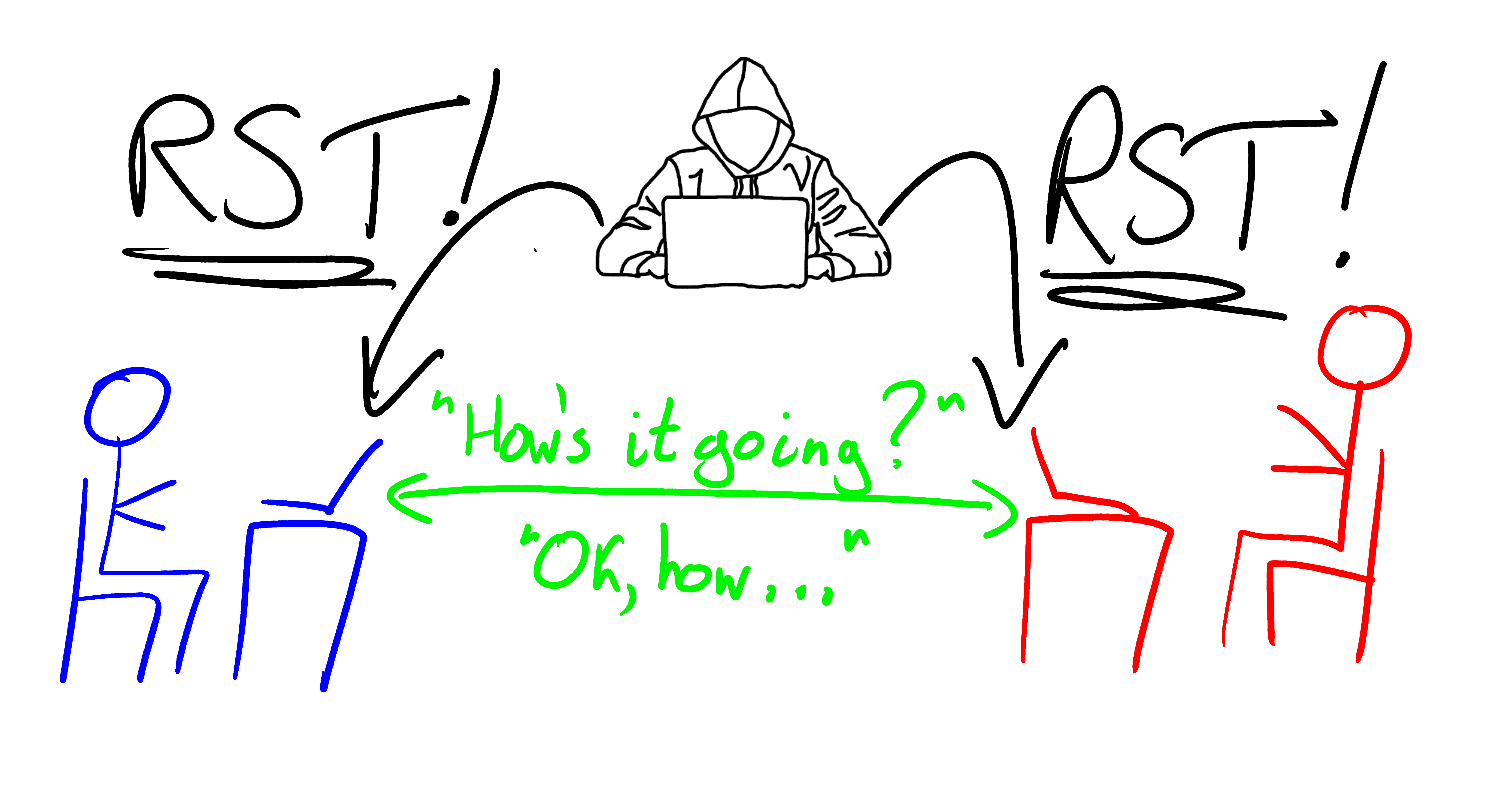 RST! RST!
"How's it going?"
"Ok, how..."